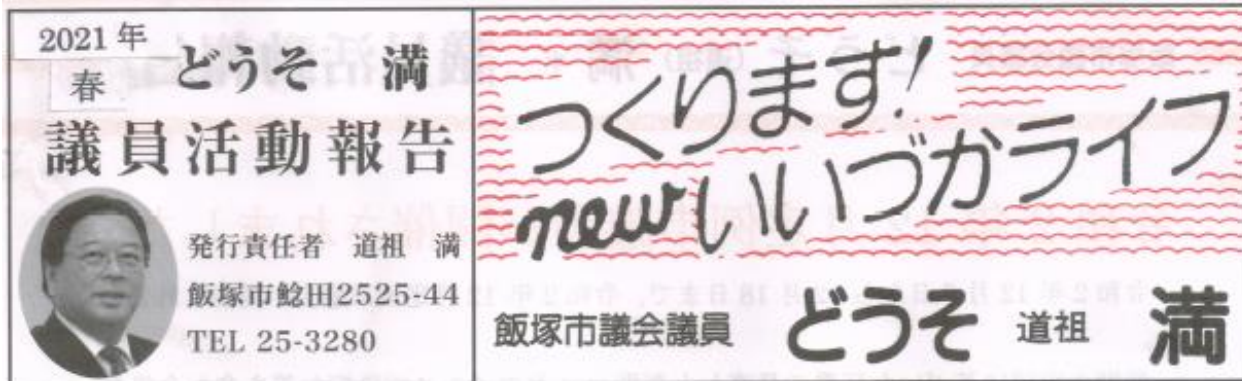 2021年
春
どうそ 満
議員活動報告
発行責任者 道祖 満
飯塚市鯰田2525-44
TEL 25-3280
つくります!
newいいづかライフ
飯塚市議会議員 どうそ 道祖 満